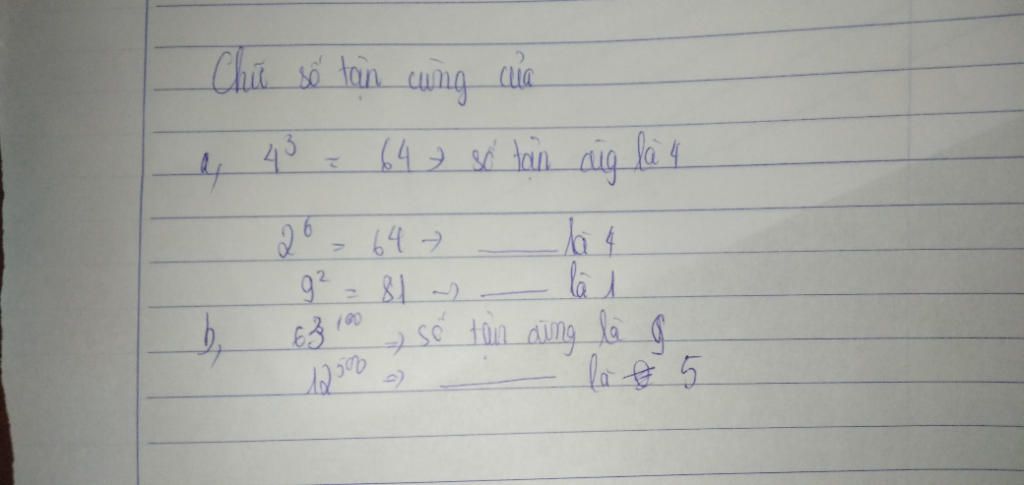 Chữ số tận cùng của
a, 4³ = 64 → số tận cùg là 4
2⁶ = 64 → —— là 4
9² = 81 → —— là 1
b, 63¹⁰⁰ => số tận cùng là 9
12⁵⁰⁰ => —— là 5